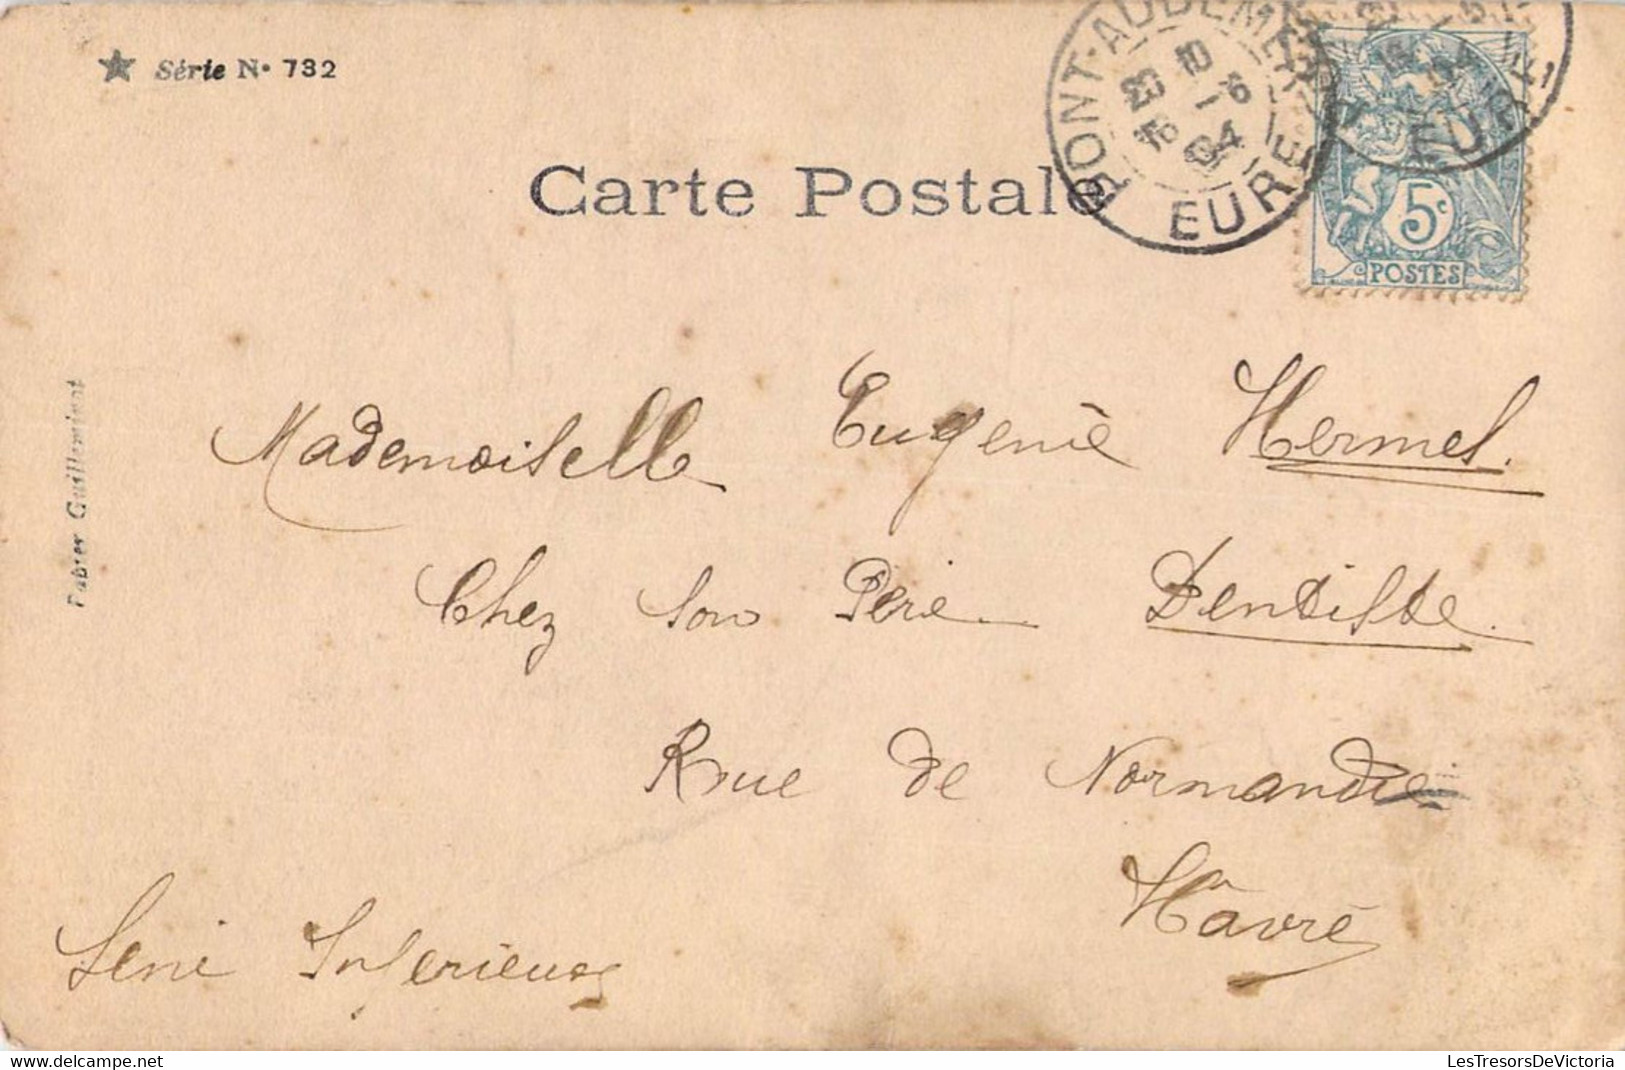 ★ Série N° 732
Carte Postale
PONT-AUDEMER
16 23
10 -6
04
EURE
EURE
5c
POSTES
Papier Guilleminot
Mademoiselle Eugenie Hermel.
Chez son Père Dentiste.
Rue de Normandie
Hâvre
Seine Inferieure
LesTresorsDeVictoria